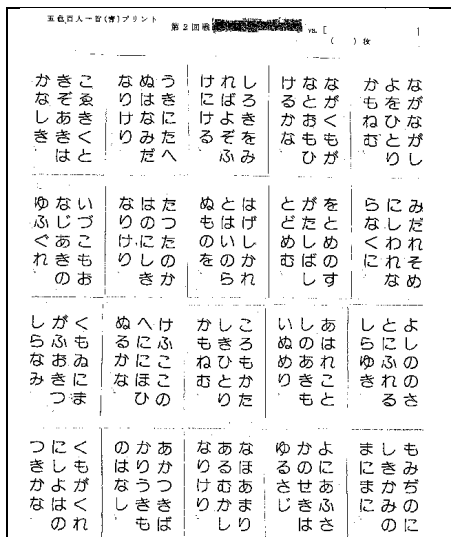 五色百人一首(青)プリント
第2回戦 vs. [ ]
( )枚
ながながし
よをひとり
かもねむ
ながくもが
なとおもひ
けるかな
しろきをみ
ればよぞふ
けにける
うきにたへ
ぬはなみだ
なりけり
こゑきくと
きぞあきは
かなしき
みだれそめ
にしわれな
らなくに
をとめのす
がたしばし
とどめむ
はげしかれ
とはいのら
ぬものを
たつたのか
はのにしき
なりけり
いづこもお
なじあきの
ゆふぐれ
よしののさ
とにふれる
しらゆき
あはれこと
しのあきも
いぬめり
ころもかた
しきひとり
かもねむ
けふここの
へににほひ
ぬるかな
くもゐにま
がふおきつ
しらなみ
もみぢのに
しきかみの
まにまに
よにあふさ
かのせきは
ゆるさじ
なほあまり
あるむかし
なりけり
あかつきば
かりうきも
のはなし
くもがくれ
にしよはの
つきかな